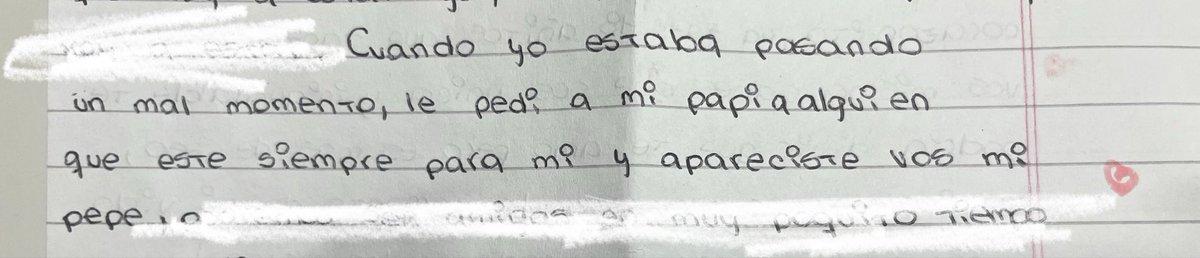 Cuando yo estaba pasando
un mal momento, le pedi a mi papi a alguien
que este siempre para mi y apareciste vos mi
pepe, muy tiempo